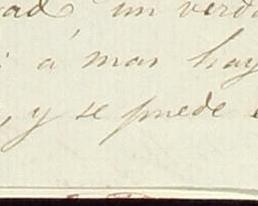 ad un verda
i á mas hay
, y se puede e